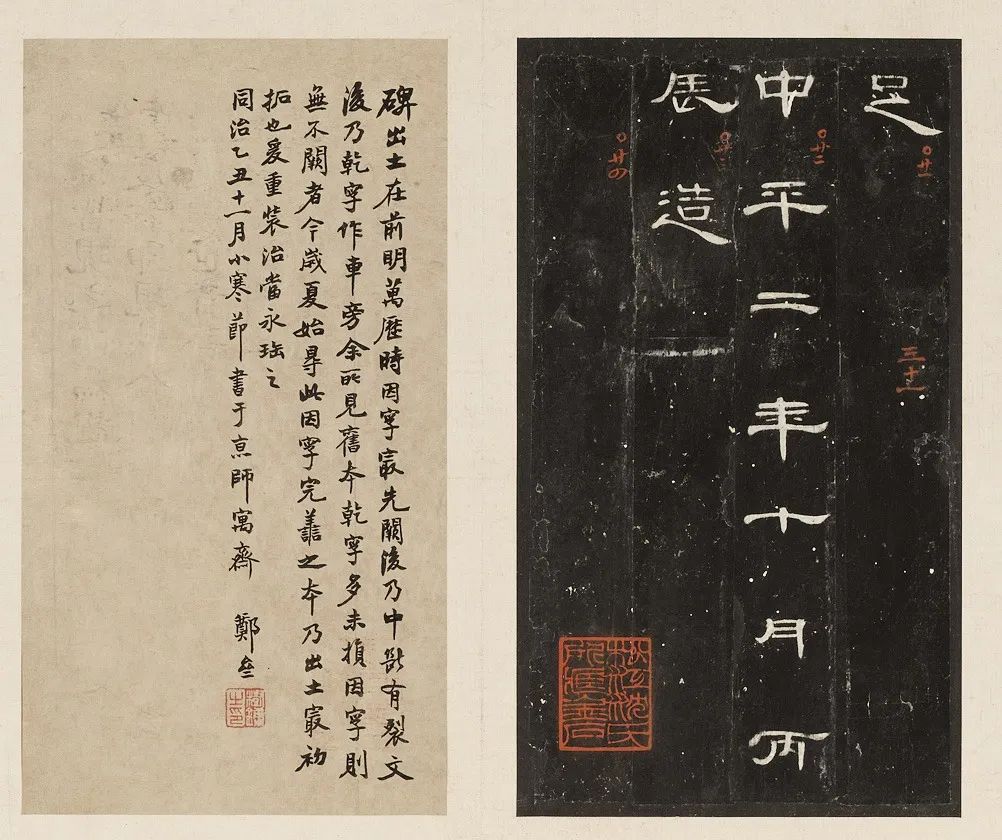 足
中平二年十月丙
辰造
〇廿一
〇廿二
〇廿三
〇廿四
三十一
碑出土在前明萬歷時因字最先闕後乃中斷有裂文
後乃乾字作車旁余所見舊本乾字多未損因字則
無不闕者今歲夏始㝵此因字完善之本乃出土最初
拓也爰重裝治當永珤之
同治乙丑十一月小寒節書于亰師寓齋 鄭亝